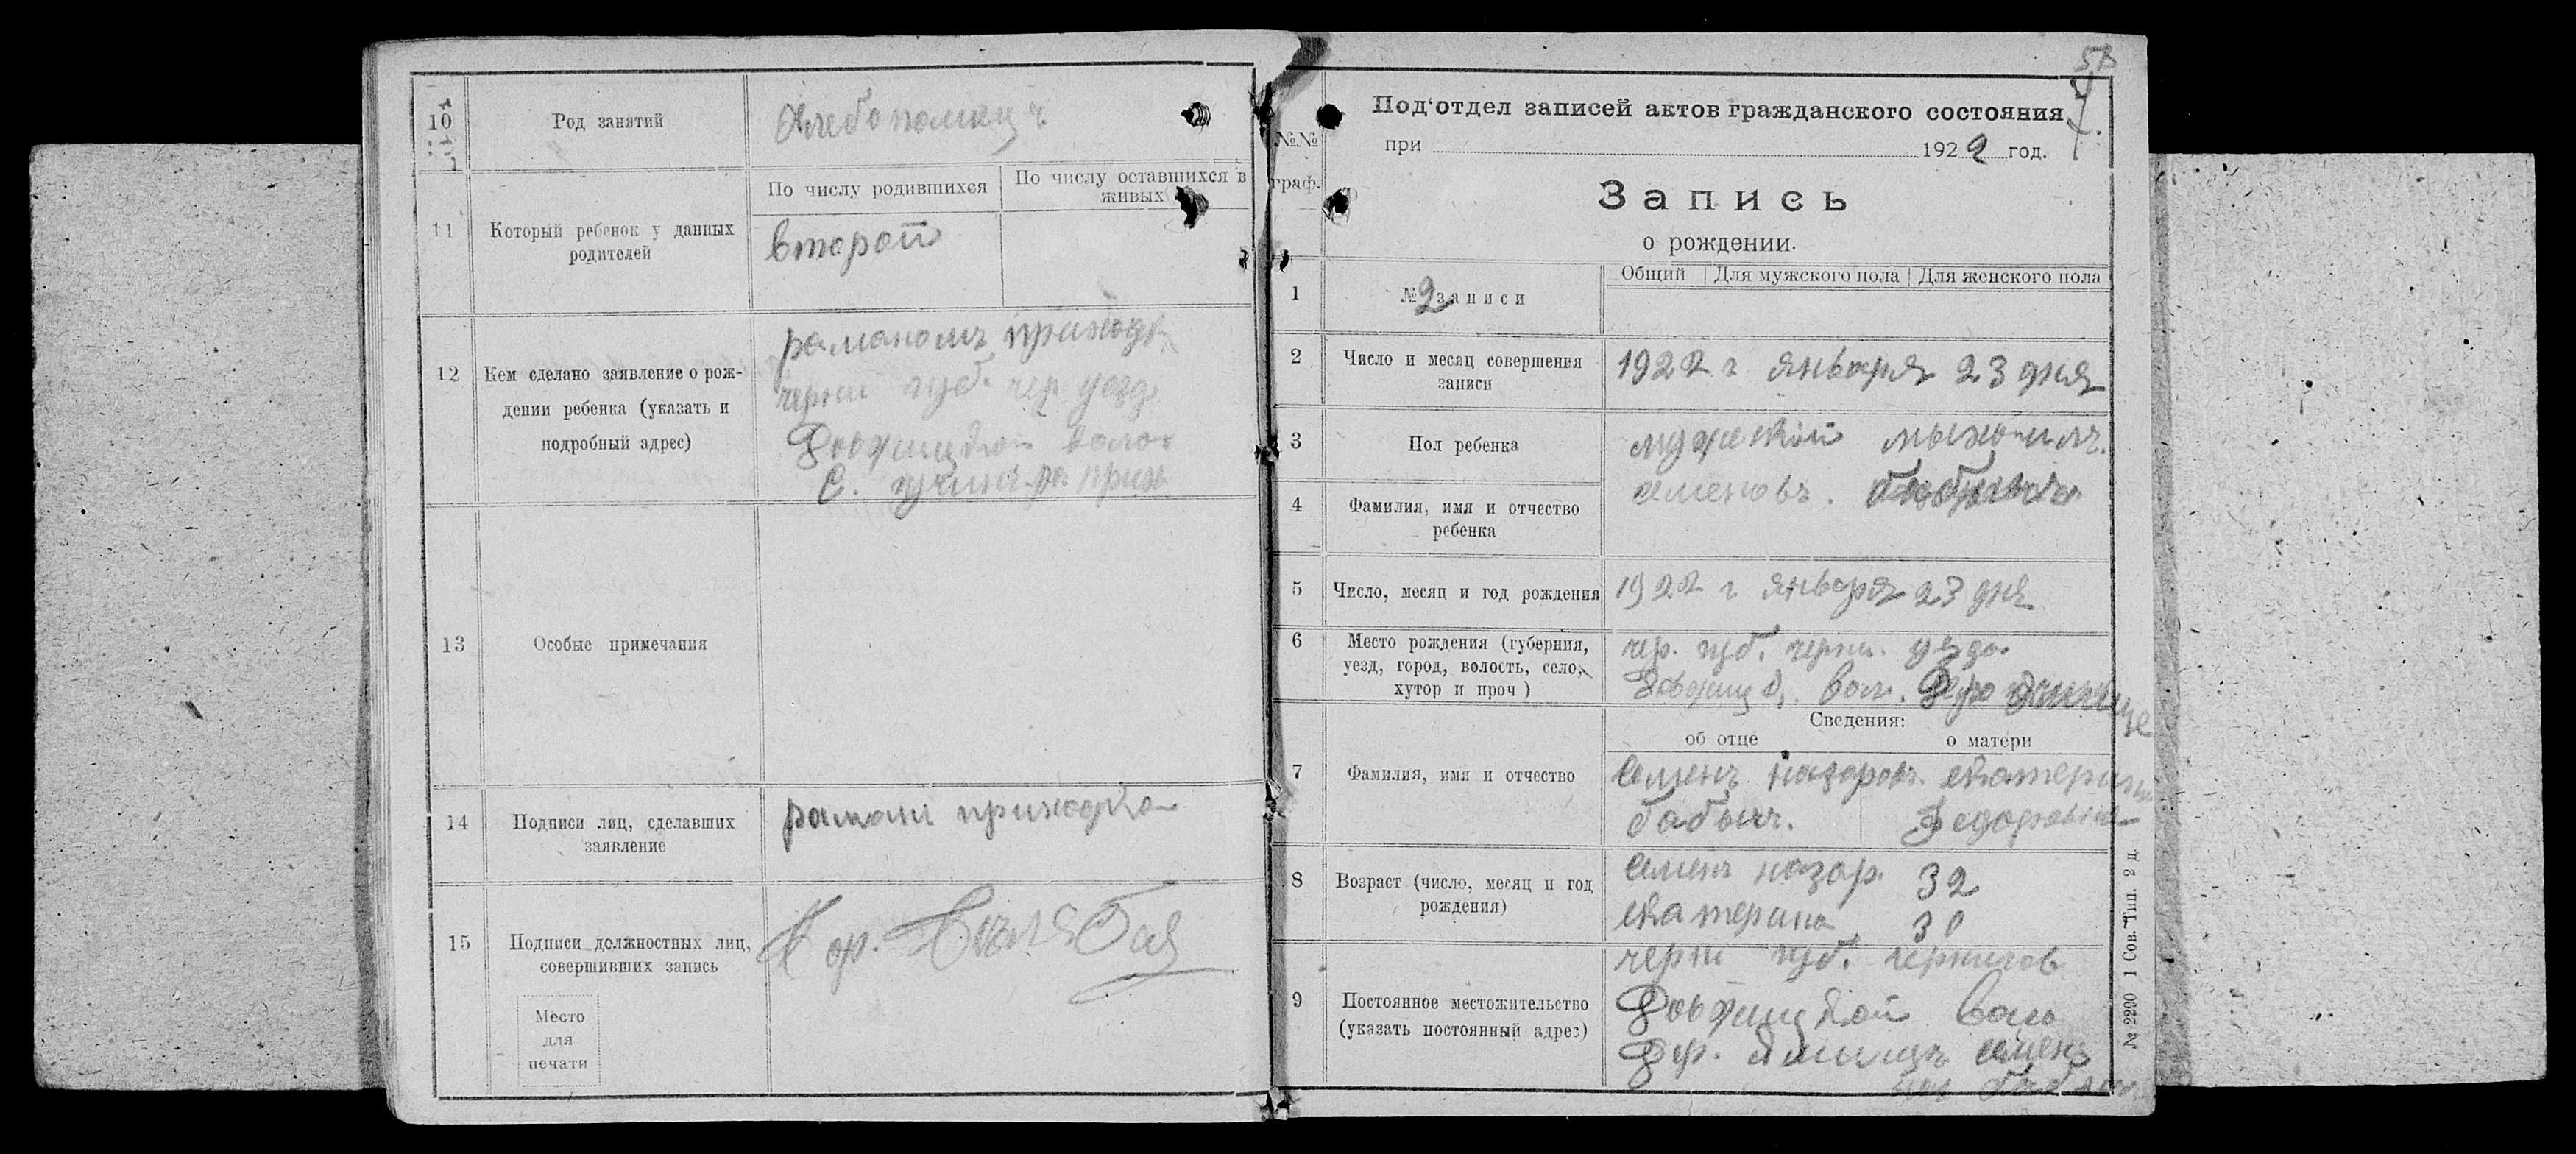 10
Род занятий
хлебопошец ъ
11
Который ребенок у данных
родителей
По числу родившихся
По числу оставшихся в
живых
второй
12
Кем сделано заявление о рож-
дении ребенка (указать и
подробный адрес)
романомъ приходк
черни губ. чер уезд
волос
С.
13
Особые примечания
14
Подписи лиц, сделавших
заявление
роман приходко
15
Подписи должностных лиц,
совершивших запись
Место
для
печати
58
№№
граф.
Под'отдел записей актов гражданского состояния
при 1922 год.
Запись
о рождении.
1
№ 2 записи
Общий Для мужского пола Для женского пола
2
Число и месяц совершения
записи
1922 г января 23 дня
3
Пол ребенка
мужской
4
Фамилия, имя и отчество
ребенка
семеновъ.
5
Число, месяц и год рождения
1922 г января 23 дня
6
Место рождения (губерния,
уезд, город, волость, село,
хутор и проч )
чер. губ. черни. уезда
вол.
Сведения:
об отце
о матери
7
Фамилия, имя и отчество
Семенъ назаров. екатерина
бабичъ. Федоровна
8
Возраст (число, месяц и год
рождения)
семен назар. 32
екатерина 30
9
Постоянное местожительство
(указать постоянный адрес)
черни губ. чернигов
воло
дер. семен
№ 2290 1 Сов. Тип. 2 д.